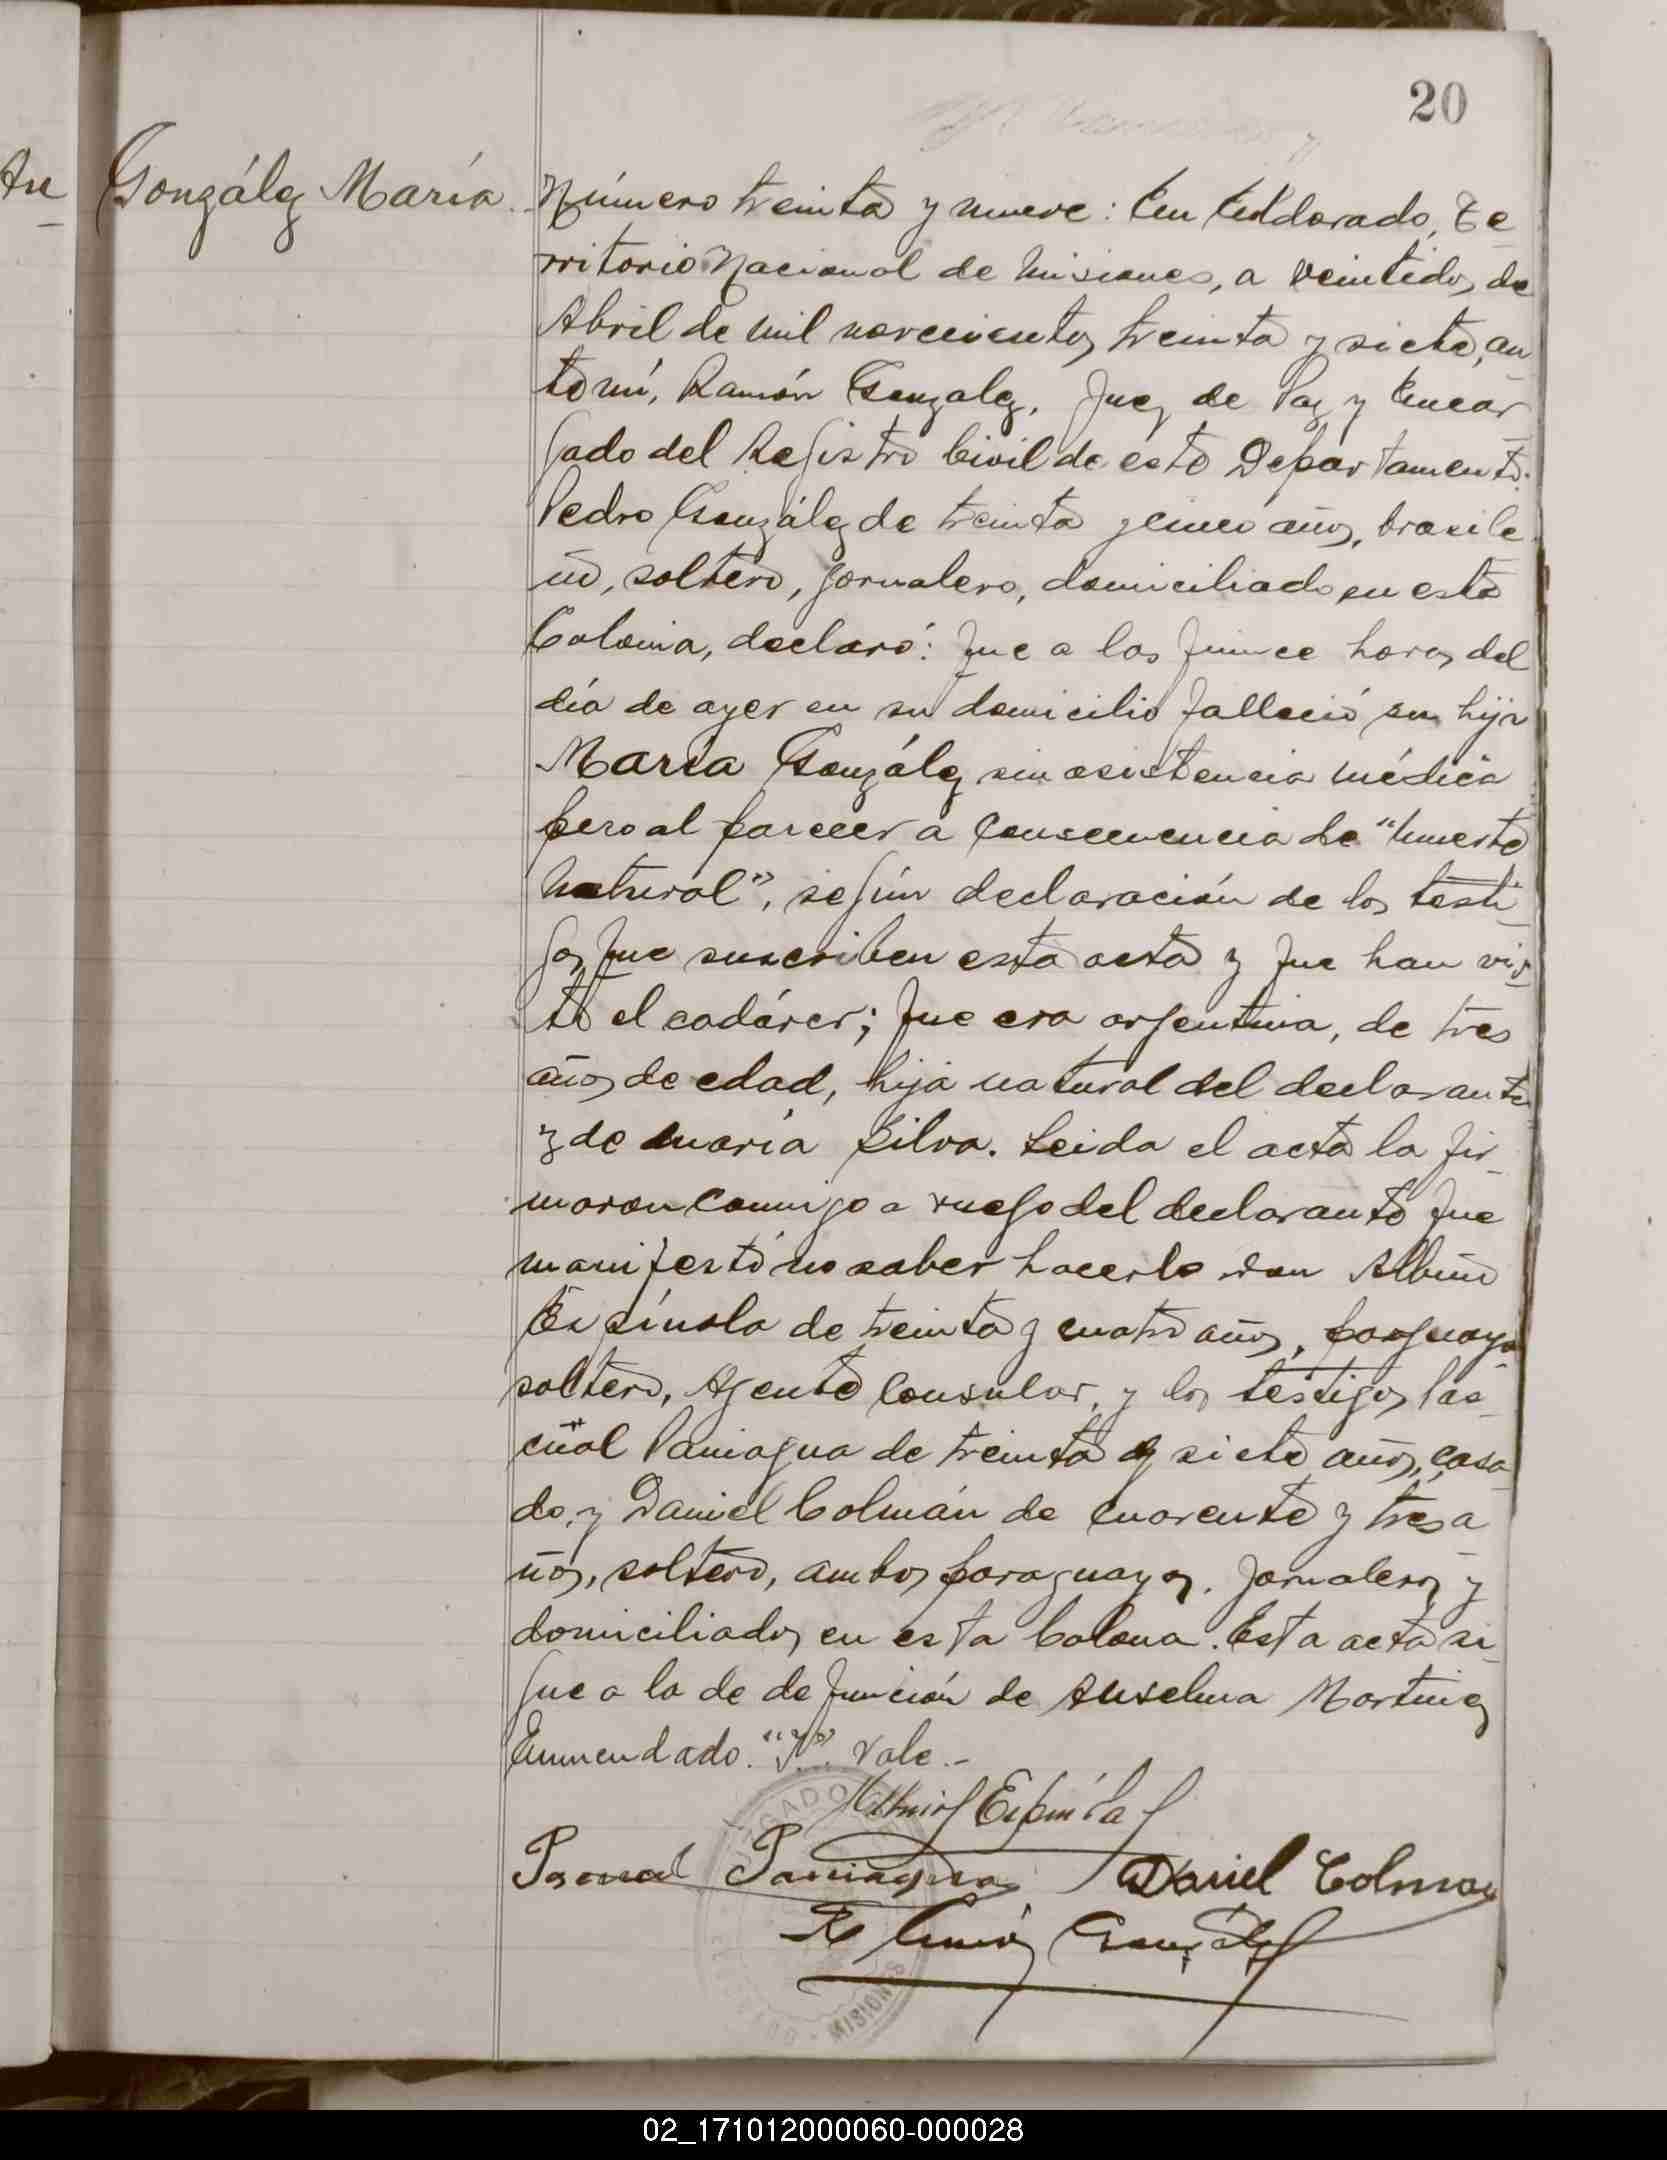 20
González María.
Número treinta y nueve: En Eldorado, Te
rritorio Nacional de Misiones, a veintidos de
Abril de mil novecientos treinta y siete, an
te mí, Ramón Gonzalez, Juez de Paz y Encar
gado del Registro Civil de este Departamento:
Pedro González de treinta y cinco años, brasile
ño, soltero, jornalero, domiciliado en esta
Colonia, declaró: Que a las quince horas del
día de ayer en su domicilio falleció su hija
María González sin asistencia médica
pero al parecer a consecuencia de "muerte
natural", según declaración de los testi
gos que suscriben esta acta y que han vis
to el cadáver; que era argentina, de tres
años de edad, hija natural del declarante
y de María Silva. Leida el acta la fir
maron conmigo a ruego del declarante que
manifestó no saber hacerlo don Albino
Espínola de treinta y cuatro años, paraguayo
soltero, Agente Consular, y los testigos Pas
cual Paniagua de treinta y siete años, casa
do, y Daniel Colmán de cuarenta y tres a
ños, soltero, ambos paraguayos, jornaleros y
domiciliados en esta Colonia. Esta acta si
gue a la de defunción de Anselma Martinez
Enmendado. "y". Vale.-
Albino Espínola
Pascual Paniagua Daniel Colman
Ramón González
JUZGADO
MISIONES
02_171012000060-000028